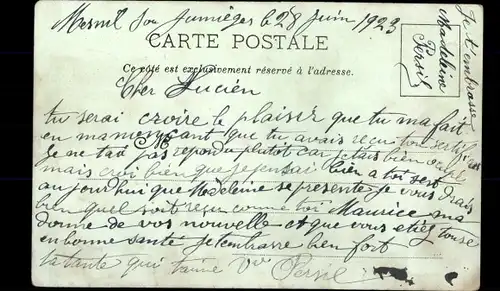 Mesnil Sou Jumièges le 28 juin 1923
CARTE POSTALE
Ce côté est exclusivement réservé à l'adresse.
Cher Lucien
tu serai croire le plaisir que tu ma fait
en ma monçant que tu avais reçu ton sertifica
Je ne tai pas repondu plutot car jetais bien
mais croi bien que je pensai bien a toi
aujourdhui que Madeleine se presente je vou drais
bien quel soit reçu comme toi Maurice ma
donne de vos nouvelle et que vous etiez touse
en bonne santé je tembrasse bien fort
ta tante qui taime Vve Persil
Je t'embrasse
Madeleine
Persil